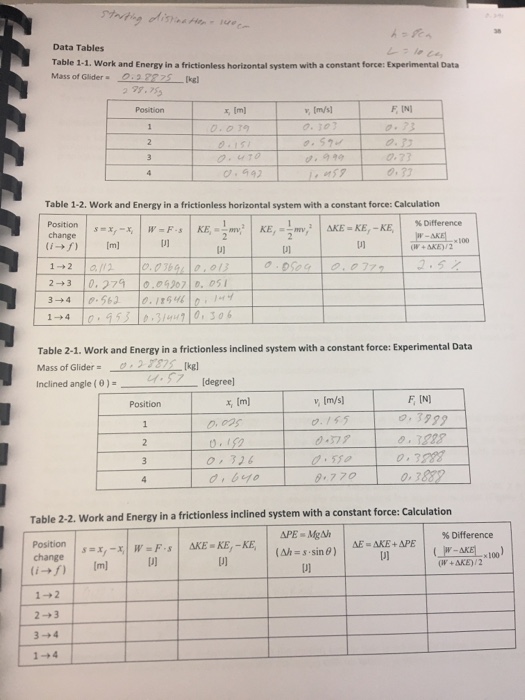 Starting distance = 140cm
h = 8cm
38
L = 10 cm
Data Tables
Table 1-1. Work and Energy in a frictionless horizontal system with a constant force: Experimental Data
Mass of Glider = 0.28875 [kg]
Position x, [m] v, [m/s] F, [N]
1 0.039 0.303 0.33
2 0.151 0.594 0.33
3 0.430 0.33
4 0.992 0.33
Table 1-2. Work and Energy in a frictionless horizontal system with a constant force: Calculation
Position change (i→f) s = x_f - x_i [m] W = F·s [J] KE_i = 1/2 mv_i² [J] KE_f = 1/2 mv_f² [J] ΔKE = KE_f - KE_i [J] % Difference |W - ΔKE| / (W + ΔKE)/2 ×100
1→2 0.112 0.03696 0.013 0.0509 0.0379 2.5%
2→3 0.279 0.09207 0.051
3→4 0.562 0.18546 0.144
1→4 0.953 0.31449 0.306
Table 2-1. Work and Energy in a frictionless inclined system with a constant force: Experimental Data
Mass of Glider = 0.28875 [kg]
Inclined angle (θ) = 4.57 [degree]
Position x, [m] v, [m/s] F, [N]
1 0.025 0.155
2 0.378 0.3888
3 0.326 0.550 0.3888
4 0.640 0.770 0.3888
Table 2-2. Work and Energy in a frictionless inclined system with a constant force: Calculation
Position change (i→f) s = x_f - x_i [m] W = F·s [J] ΔKE = KE_f - KE_i [J] ΔPE = MgΔh (Δh = s·sin θ) [J] ΔE = ΔKE + ΔPE [J] % Difference ( |W - ΔKE| / (W + ΔKE)/2 ×100)
1→2
2→3
3→4
1→4